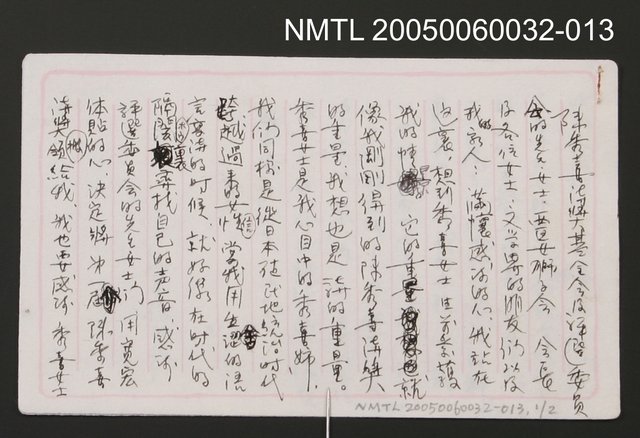 NMTL 20050060032-013
陳秀喜詩獎基金會及評選委員
會的先生女士、曹女獅子會 會長
及各位女士、文學界的朋友們以及
我的家人：滿懷感謝的心，我站在
這裏，想到秀喜女士
我的情 它的重量 就
像我剛剛得到的陳秀喜詩獎
的重量，我想也是詩的重量。
秀喜女士是我心目中的秀喜姊，
我們同樣是從日本 統治時代
跨越過來的女性 當我用生澀的語
言寫詩的時候 就好像在時代的
隔閡裏尋找自己的声音，感謝
評選委員會的先生女士們 用寬宏
体貼的心，決定將 陳秀喜
詩獎頒給我 我也要感謝 秀喜女士
NMTL 20050060032-013, 1/2